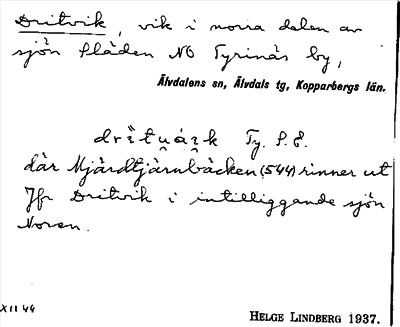 Dritvik, vik i norra delen av
sjön Fläden NO Tyrinäs by,
Älvdalens sn, Älvdals tg, Kopparbergs län.
Ty. S. E.
där Mjärdtjärnbäcken (544) rinner ut
Jfr Dritvik i intilliggande sjön
Noren.
XII 44
HELGE LINDBERG 1937.